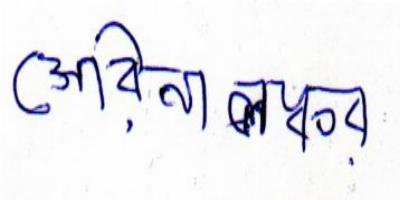 সেরিনা লস্কর